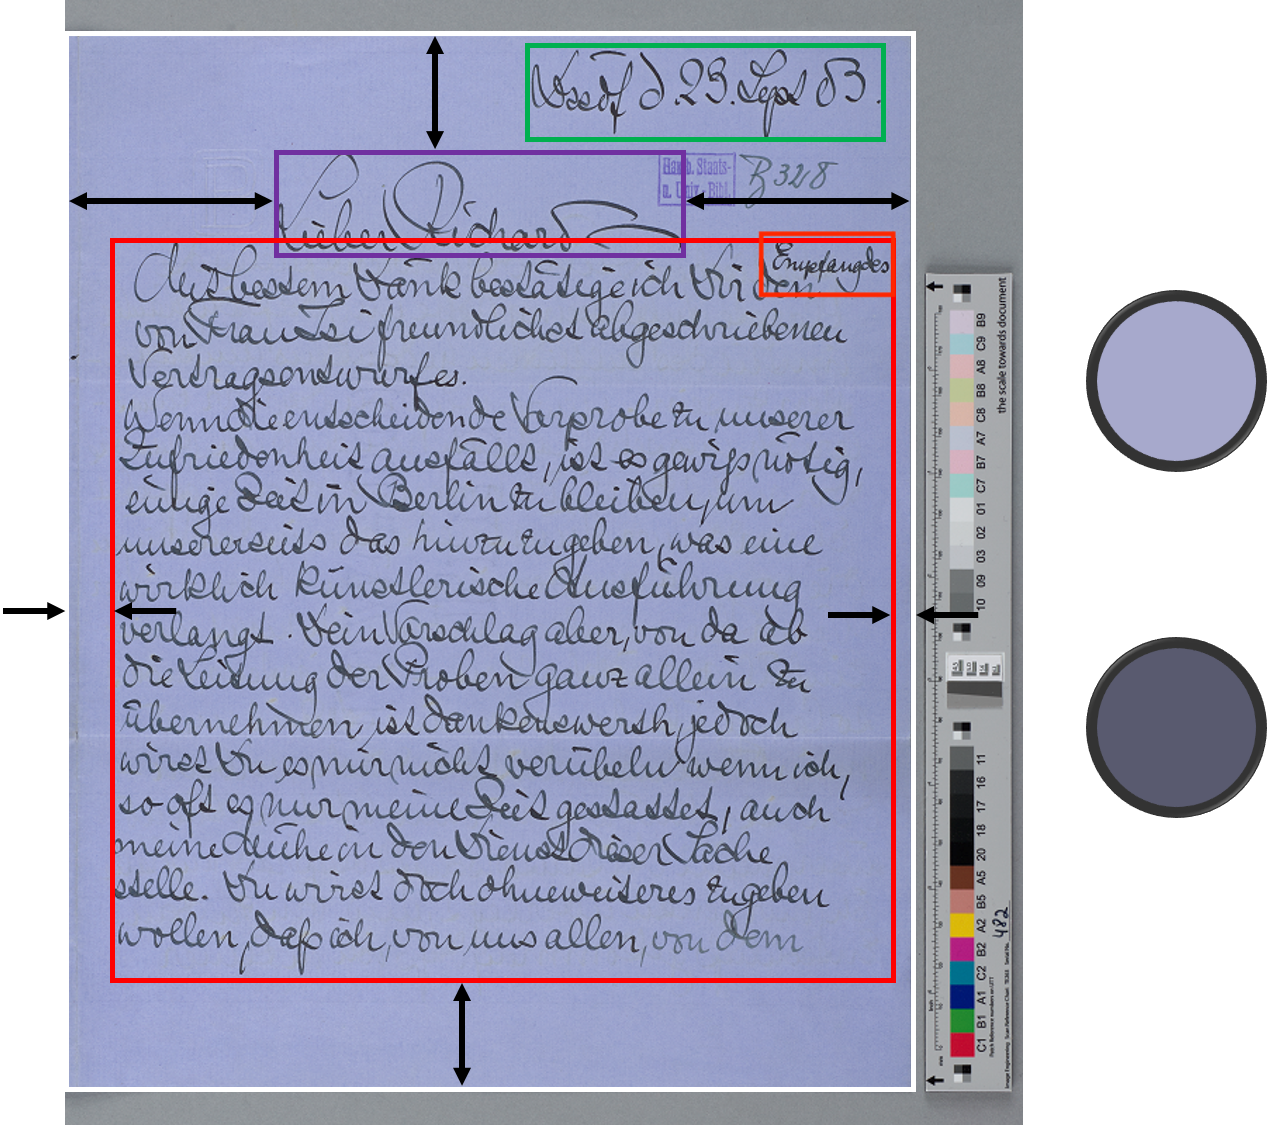 Dssdf d. 23. Sept 03.
Hamb. Staats-
u. Univ.-Bibl.
B 328
Lieber Richard
Empfang des
Mit bestem Dank bestätige ich Dir den
von Frau Isi freundlichst abgeschriebenen
Vertragsentwurfes.
Wenn die entscheidende Vorprobe zu unserer
Zufriedenheit ausfällt, ist es gewiss nötig,
einige Zeit in Berlin zu bleiben, um
unsererseits das hinzuzugeben, was eine
wirklich künstlerische Ausführung
verlangt. Dein Vorschlag aber, von da ab
die Leitung der Proben ganz allein zu
übernehmen, ist dankenswerth, jedoch
wirst Du es mir nicht verübeln wenn ich,
so oft es nur meine Zeit gestattet, auch
meine Mühe in den Dienst dieser Sache
stelle. Du wirst doch ohneweiteres zugeben
wollen, daß ich, von uns allen, von dem
the scale towards document
B9
C9
A8
B8
C8
A7
B7
C7
01
02
03
09
10
11
16
17
18
20
A5
B5
A2
B2
C2
A1
B1
C1
482